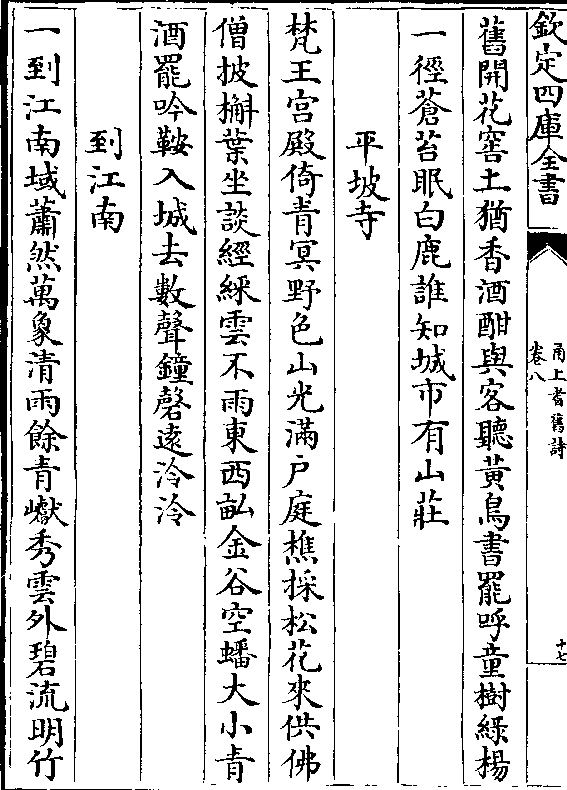 欽定四庫全書
甬上耆舊詩
卷八
十七
舊開花窖土猶香酒酣與客聽黃鳥書罷呼童樹綠楊
一徑蒼苔眠白鹿誰知城市有山莊
平坡寺
梵王宮殿倚青冥野色山光滿戶庭樵採松花來供佛
僧披槲葉坐談經綵雲不雨東西畝金谷空蟠大小青
酒罷吟鞍入城去數聲鐘磬遠泠泠
到江南
一到江南域蕭然萬象清雨餘青巘秀雲外碧流明竹